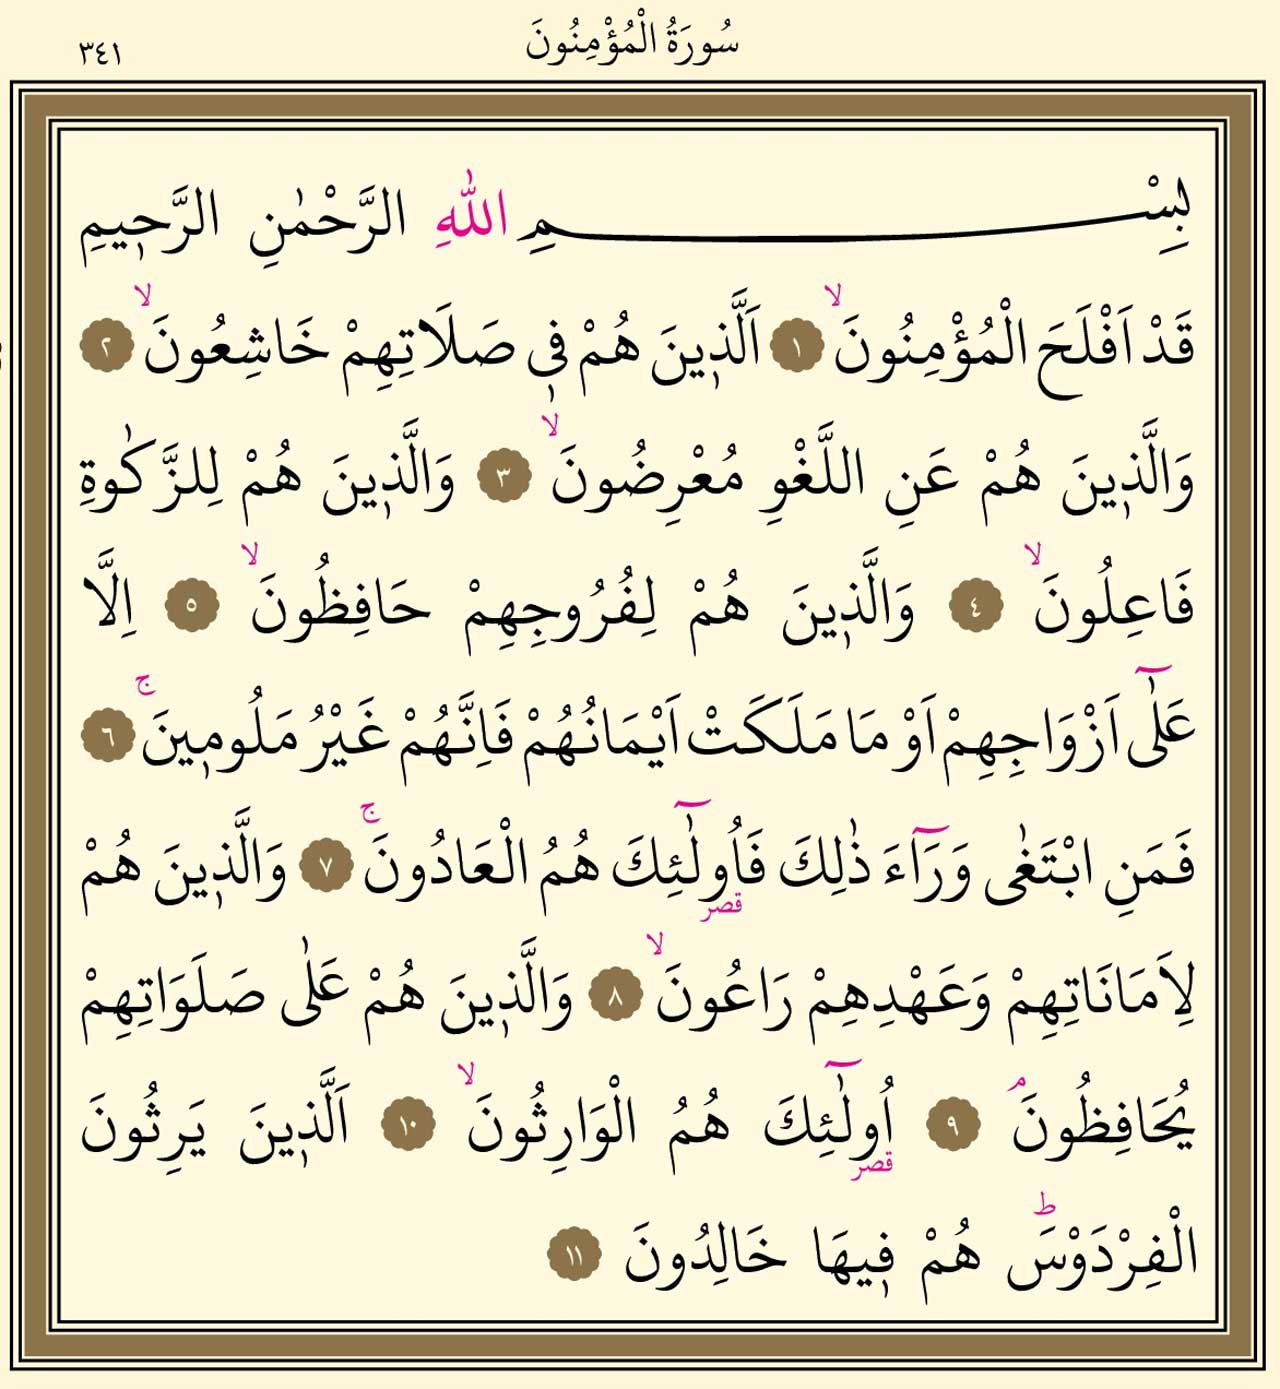 سُورَةُ الْمُؤْمِنُونَ ٣٤١
بِسْمِ اللّٰهِ الرَّحْمٰنِ الرَّحٖيمِ
قَدْ اَفْلَحَ الْمُؤْمِنُونَۙ ١ اَلَّذٖينَ هُمْ فٖى صَلَاتِهِمْ خَاشِعُونَۙ ٢
وَالَّذٖينَ هُمْ عَنِ اللَّغْوِ مُعْرِضُونَۙ ٣ وَالَّذٖينَ هُمْ لِلزَّكٰوةِ
فَاعِلُونَۙ ٤ وَالَّذٖينَ هُمْ لِفُرُوجِهِمْ حَافِظُونَۙ ٥ اِلَّا
عَلٰٓى اَزْوَاجِهِمْ اَوْ مَا مَلَكَتْ اَيْمَانُهُمْ فَاِنَّهُمْ غَيْرُ مَلُومٖينَۚ ٦
فَمَنِ ابْتَغٰى وَرَٓاءَ ذٰلِكَ فَاُولٰٓئِكَ هُمُ الْعَادُونَۚ ٧ وَالَّذٖينَ هُمْ
قصر
لِاَمَانَاتِهِمْ وَعَهْدِهِمْ رَاعُونَۙ ٨ وَالَّذٖينَ هُمْ عَلٰى صَلَوَاتِهِمْ
يُحَافِظُونَۢ ٩ اُولٰٓئِكَ هُمُ الْوَارِثُونَۙ ١٠ اَلَّذٖينَ يَرِثُونَ
قصر
الْفِرْدَوْسَؕ هُمْ فٖيهَا خَالِدُونَ ١١